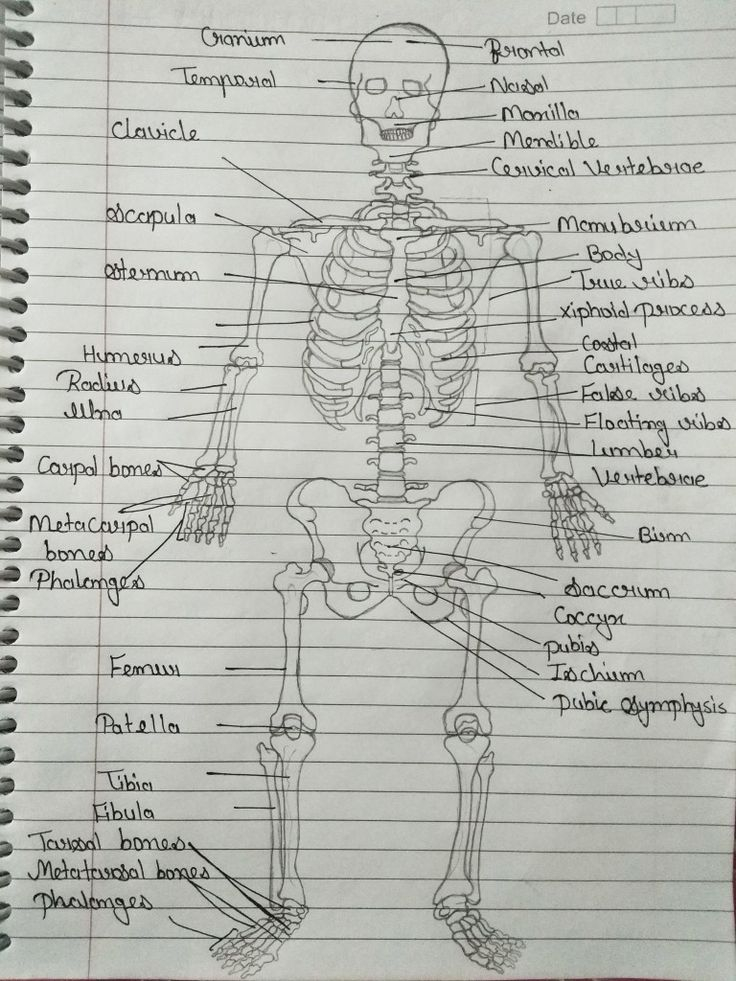 Date
Cranium
Frontal
Temporal
Nasal
Manilla
Mendible
Clavicle
Cervical Vertebrae
Scapula
Manubrium
Body
Sternum
True ribs
xiphoid process
Costal
Cartilages
Humerus
Radius
Ulna
False ribs
Floating ribs
Lumber
Vertebrae
Carpal bones
Metacarpal
bones
Phalanges
Bism
Saccrum
Coccyx
pubis
Ischium
pubic Symphysis
Femur
Patella
Tibia
Fibula
Tarsal bones
Metatarsal bones
Phalanges